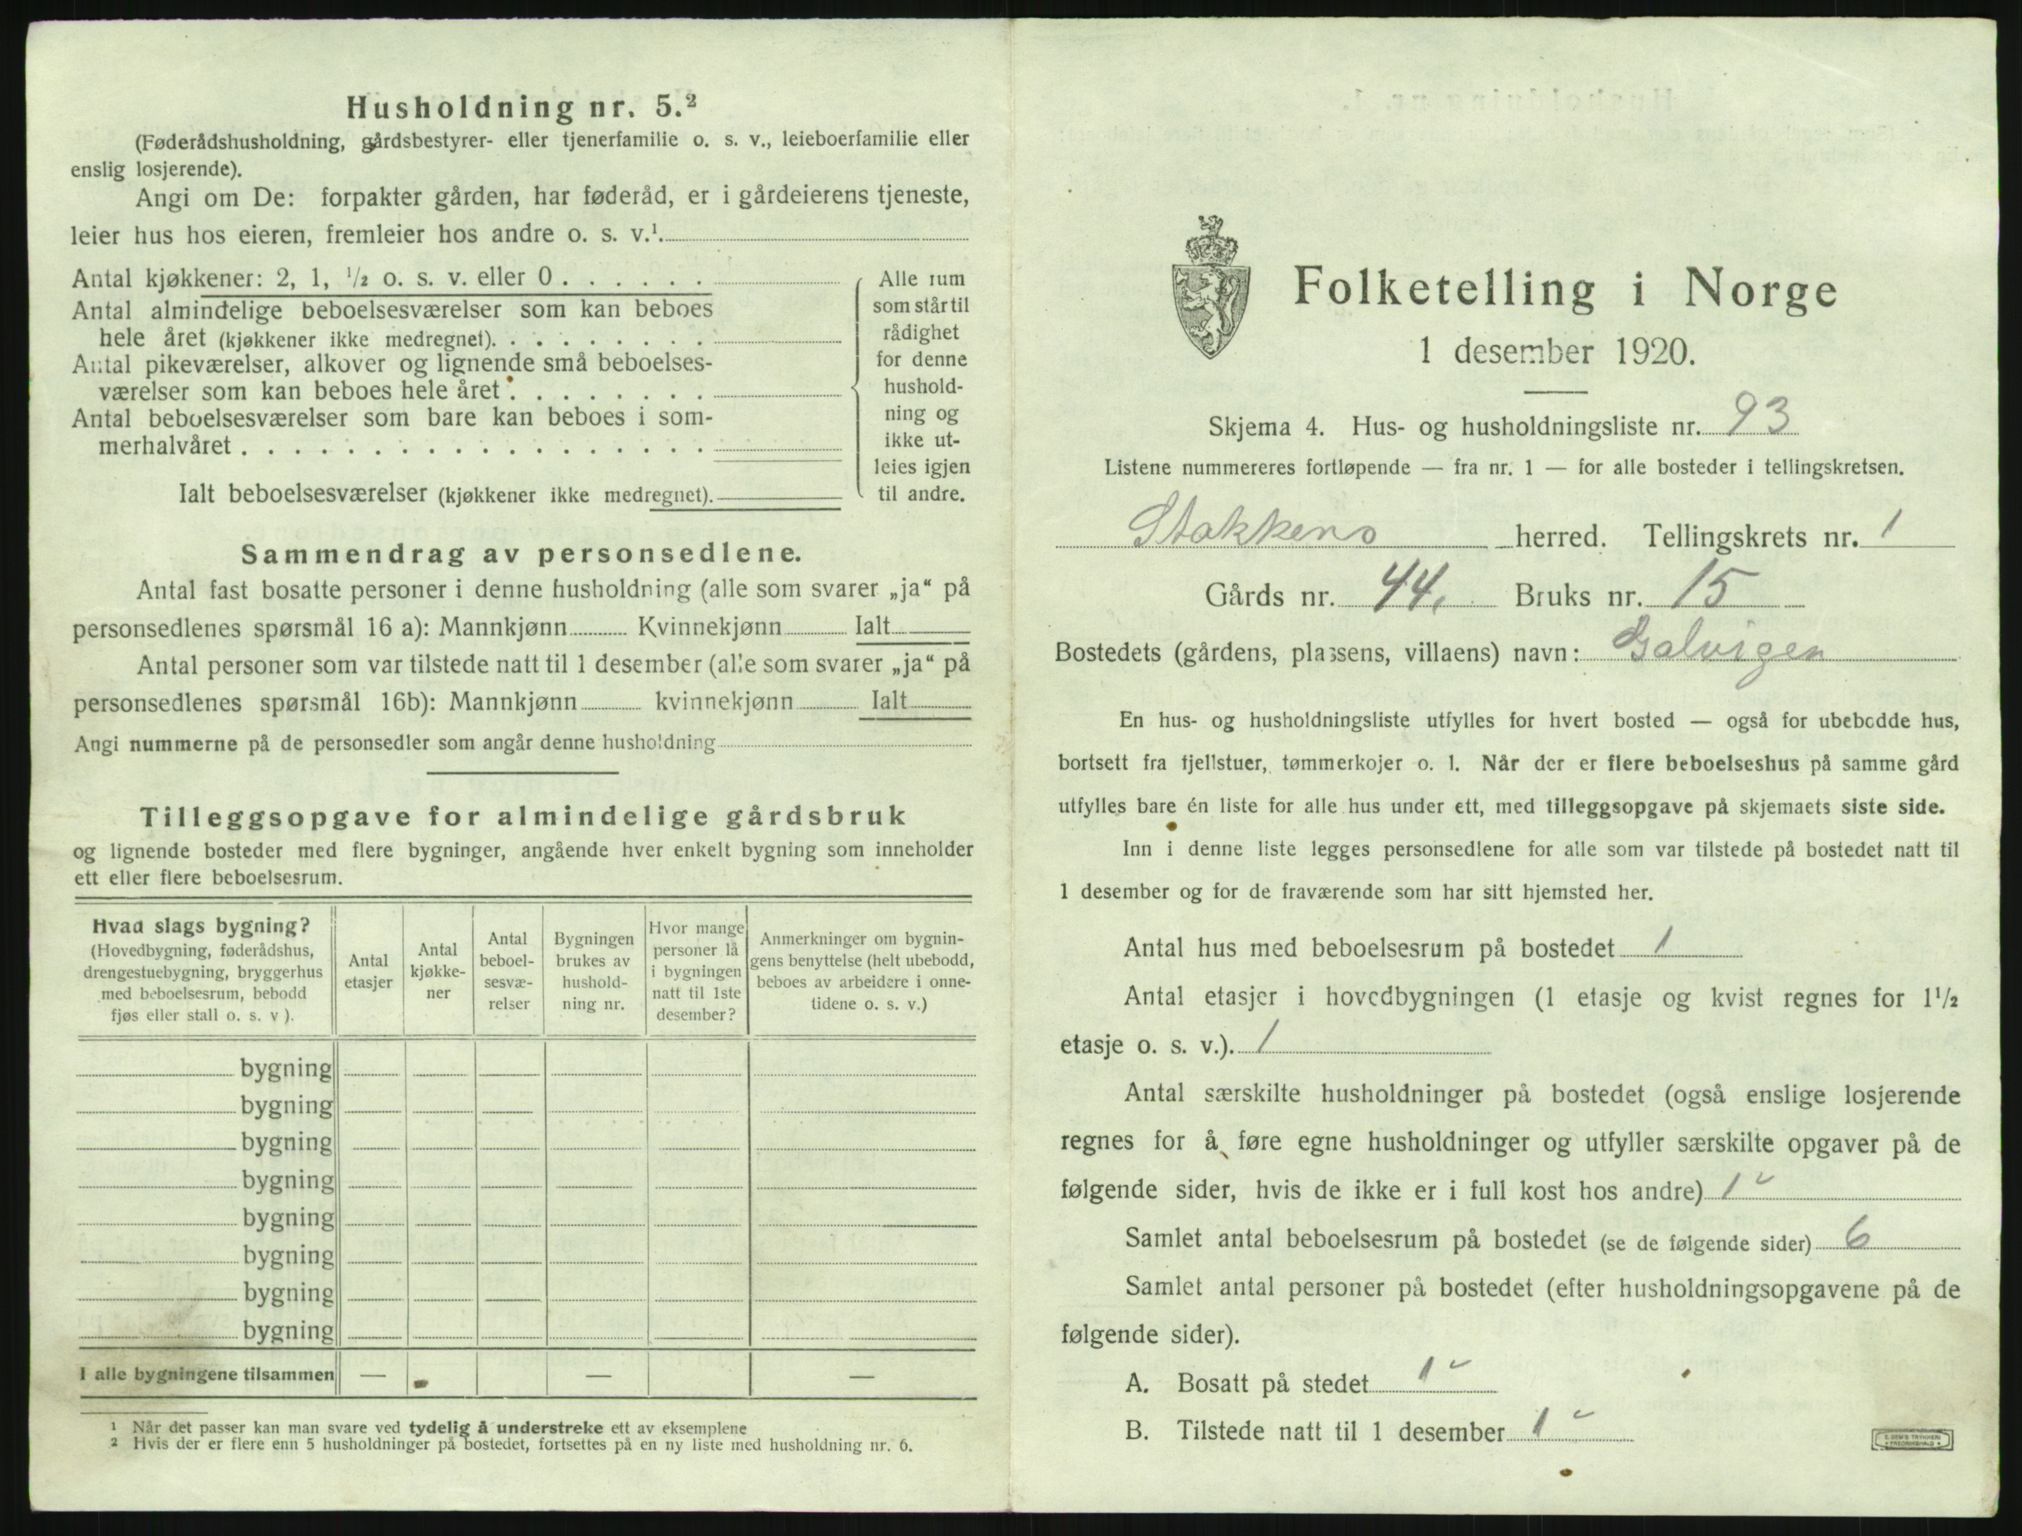 Husholdning nr. 5.²
(Føderådshusholdning, gårdsbestyrer- eller tjenerfamilie o. s. v., leieboerfamilie eller
enslig losjerende).
Angi om De: forpakter gården, har føderåd, er i gårdeierens tjeneste,
leier hus hos eieren, fremleier hos andre o. s. v.¹.
Antal kjøkkener: 2, 1, ½ o. s. v. eller 0 . . . . . .
Antal almindelige beboelsesværelser som kan beboes
hele året (kjøkkener ikke medregnet). . . . . . . . .
Antal pikeværelser, alkover og lignende små beboelses-
værelser som kan beboes hele året . . . . . . . .
Antal beboelsesværelser som bare kan beboes i som-
merhalvåret . . . . . . . . . . . . . . . . . .
Ialt beboelsesværelser (kjøkkener ikke medregnet).
Alle rum
som står til
rådighet
for denne
hushold-
ning og
ikke ut-
leies igjen
til andre.
Sammendrag av personsedlene.
Antal fast bosatte personer i denne husholdning (alle som svarer „ja“ på
personsedlenes spørsmål 16 a): Mannkjønn Kvinnekjønn Ialt
Antal personer som var tilstede natt til 1 desember (alle som svarer „ja“ på
personsedlenes spørsmål 16b): Mannkjønn kvinnekjønn Ialt
Angi nummerne på de personsedler som angår denne husholdning
Tilleggsopgave for almindelige gårdsbruk
og lignende bosteder med flere bygninger, angående hver enkelt bygning som inneholder
ett eller flere beboelsesrum.
Hvad slags bygning?
(Hovedbygning, føderådshus,
drengestuebygning, bryggerhus
med beboelsesrum, bebodd
fjøs eller stall o. s. v ).
Antal
etasjer
Antal
kjøkke-
ner
Antal
beboel-
sesvæ-
relser
Bygningen
brukes av
hushold-
ning nr.
Hvor mange
personer lå
i bygningen
natt til 1ste
desember?
Anmerkninger om bygnin-
gens benyttelse (helt ubebodd,
beboes av arbeidere i onne-
tidene o. s. v.)
bygning
bygning
bygning
bygning
bygning
bygning
bygning
bygning
I alle bygningene tilsammen — — —
¹ Når det passer kan man svare ved tydelig å understreke ett av eksemplene
² Hvis der er flere enn 5 husholdninger på bostedet, fortsettes på en ny liste med husholdning nr. 6.
Folketelling i Norge
1 desember 1920.
Skjema 4. Hus- og husholdningsliste nr. 93
Listene nummereres fortløpende — fra nr. 1 — for alle bosteder i tellingskretsen.
Stokkens herred. Tellingskrets nr. 1
Gårds nr. 44. Bruks nr. 15
Bostedets (gårdens, plassens, villaens) navn: Galvigen
En hus- og husholdningsliste utfylles for hvert bosted — også for ubebodde hus,
bortsett fra fjellstuer, tømmerkojer o. l. Når der er flere beboelseshus på samme gård
utfylles bare én liste for alle hus under ett, med tilleggsopgave på skjemaets siste side.
Inn i denne liste legges personsedlene for alle som var tilstede på bostedet natt til
1 desember og for de fraværende som har sitt hjemsted her.
Antal hus med beboelsesrum på bostedet 1
Antal etasjer i hovedbygningen (1 etasje og kvist regnes for 1½
etasje o. s. v.). 1
Antal særskilte husholdninger på bostedet (også enslige losjerende
regnes for å føre egne husholdninger og utfyller særskilte opgaver på de
følgende sider, hvis de ikke er i full kost hos andre) 1
Samlet antal beboelsesrum på bostedet (se de følgende sider) 6
Samlet antal personer på bostedet (efter husholdningsopgavene på de
følgende sider).
A. Bosatt på stedet 1
B. Tilstede natt til 1 desember 1
E. SEM'S TRYKKERI
FREDRIKSHALD